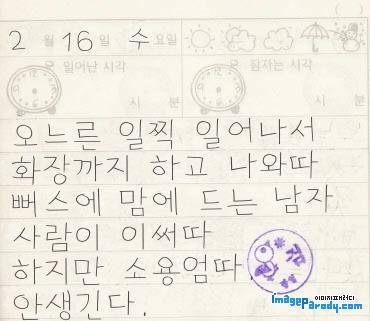 2 월 16 일 수 요일
일어난 시각 잠자는 시각
시 분 시 분
오느른 일찍 일어나서
화장까지 하고 나와따
뻐스에 맘에 드는 남자
사람이 이써따
하지만 소용엄따.
안생긴다.
이미지패러디
imageParody.com